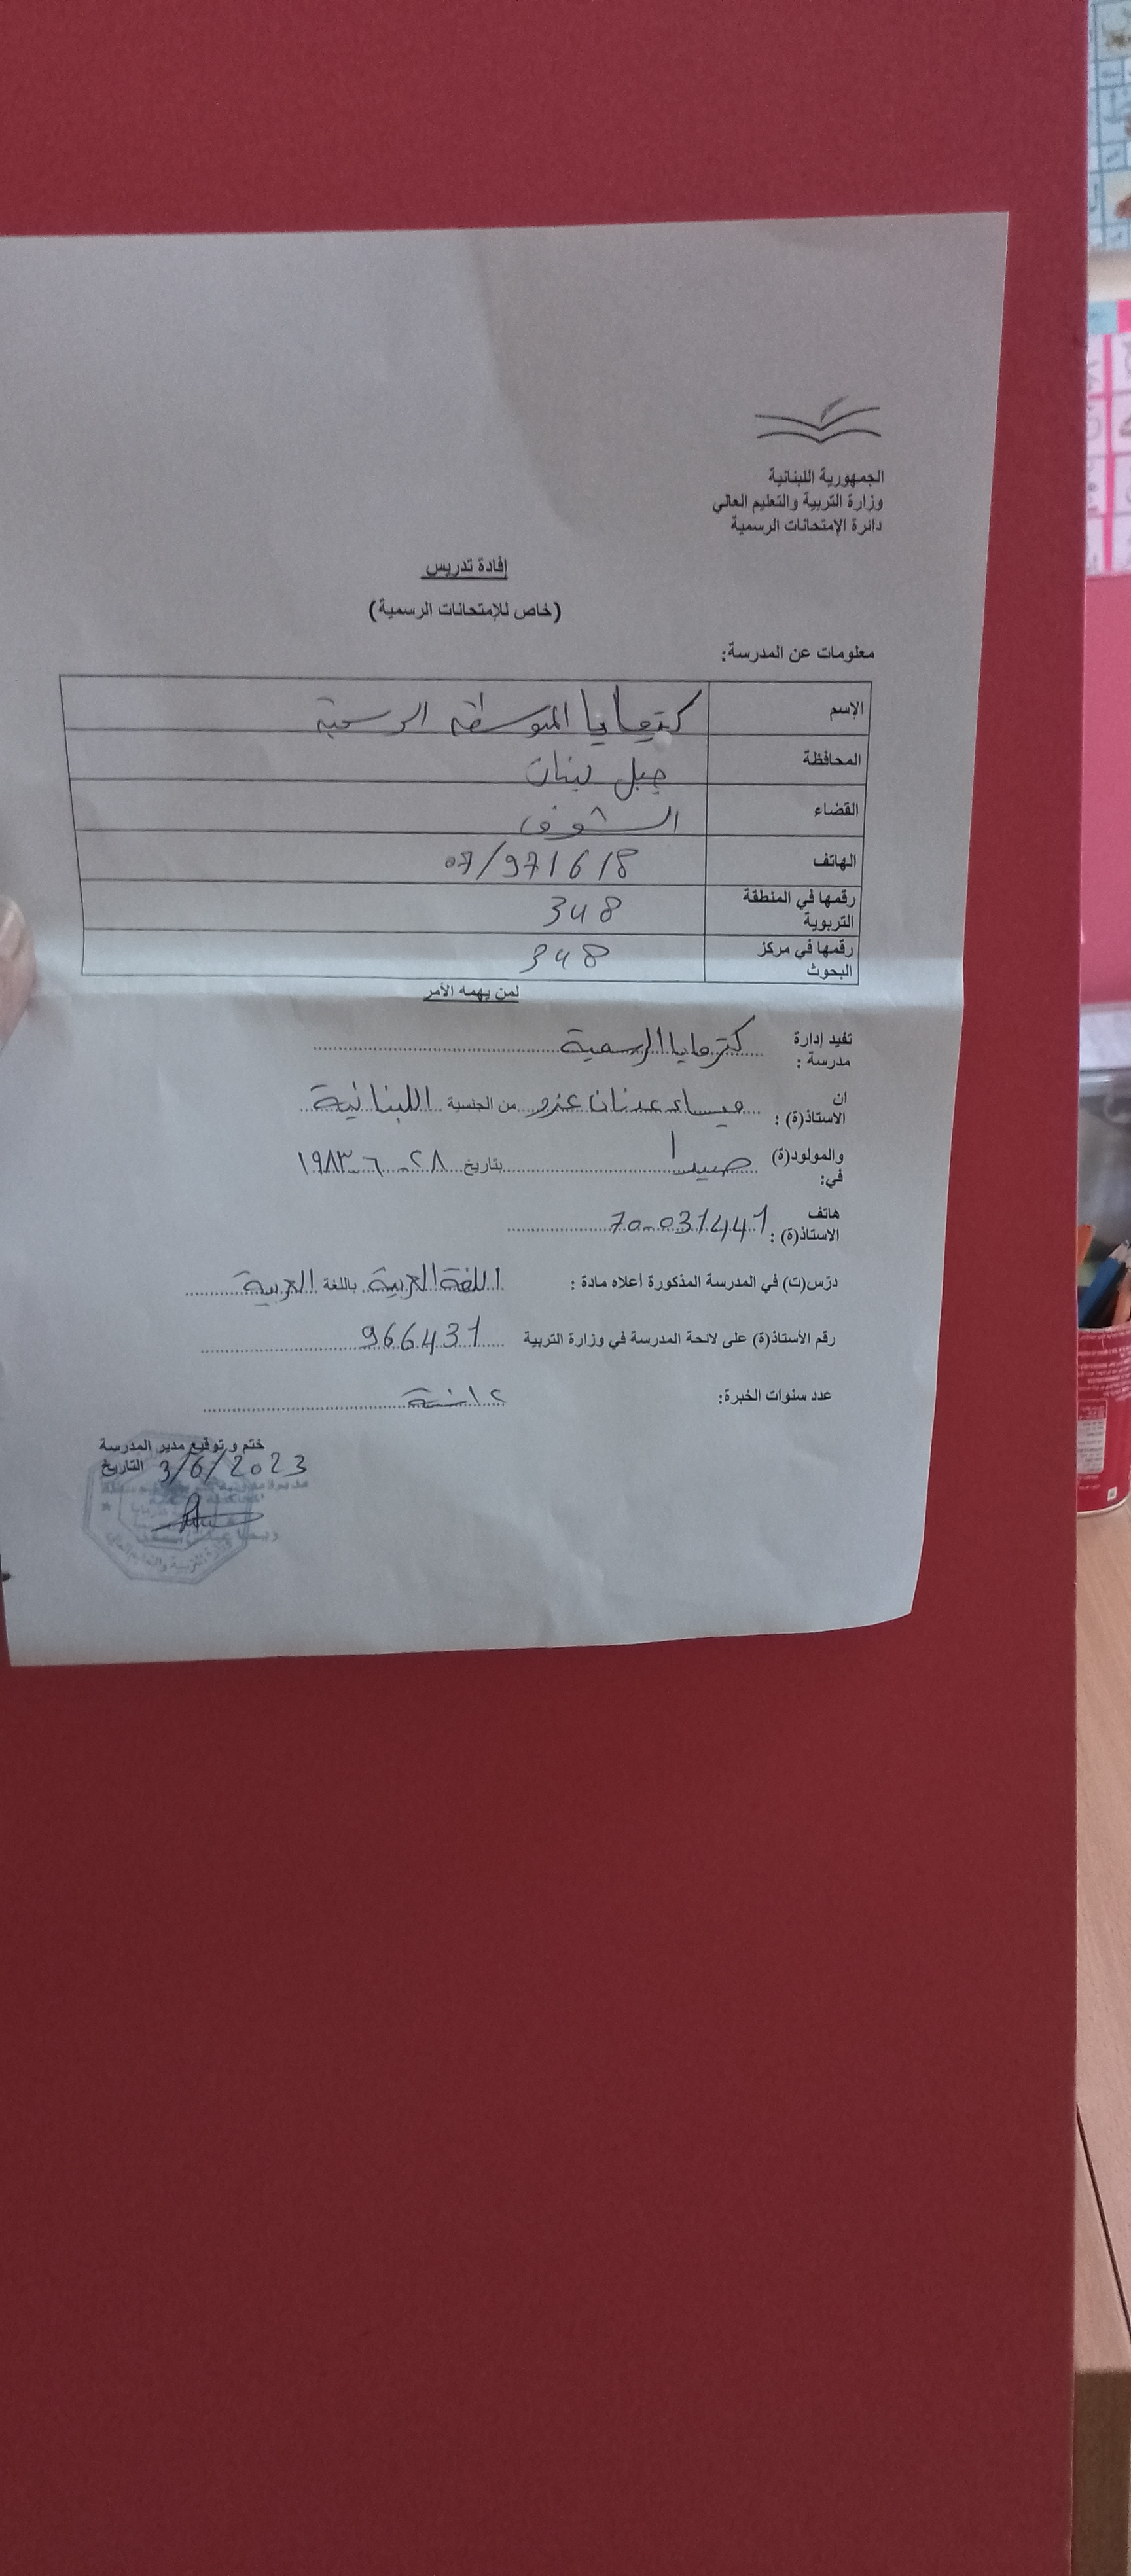 الجمهورية اللبنانية
وزارة التربية والتعليم العالي
دائرة الإمتحانات الرسمية
إفادة تدريس
(خاص للإمتحانات الرسمية)
معلومات عن المدرسة:
الإسم كترمايا المتوسطة الرسمية
المحافظة جبل لبنان
القضاء الشوف
الهاتف 07/971618
رقمها في المنطقة التربوية 348
رقمها في مركز البحوث 348
لمن يهمه الأمر
تفيد إدارة مدرسة : كترمايا الرسمية
ان الاستاذ(ة) : ميساء عدنان عزو من الجنسية اللبنانية
والمولود(ة) في: صيدا بتاريخ ٢٨-٦-١٩٨٣
هاتف الاستاذ(ة) : 70-031441
درّس(ت) في المدرسة المذكورة أعلاه مادة : اللغة العربية باللغة العربية
رقم الأستاذ(ة) على لائحة المدرسة في وزارة التربية 966431
عدد سنوات الخبرة:
ختم و توقيع مدير المدرسة
التاريخ 3/6/2023
وزارة التربية والتعليم العالي